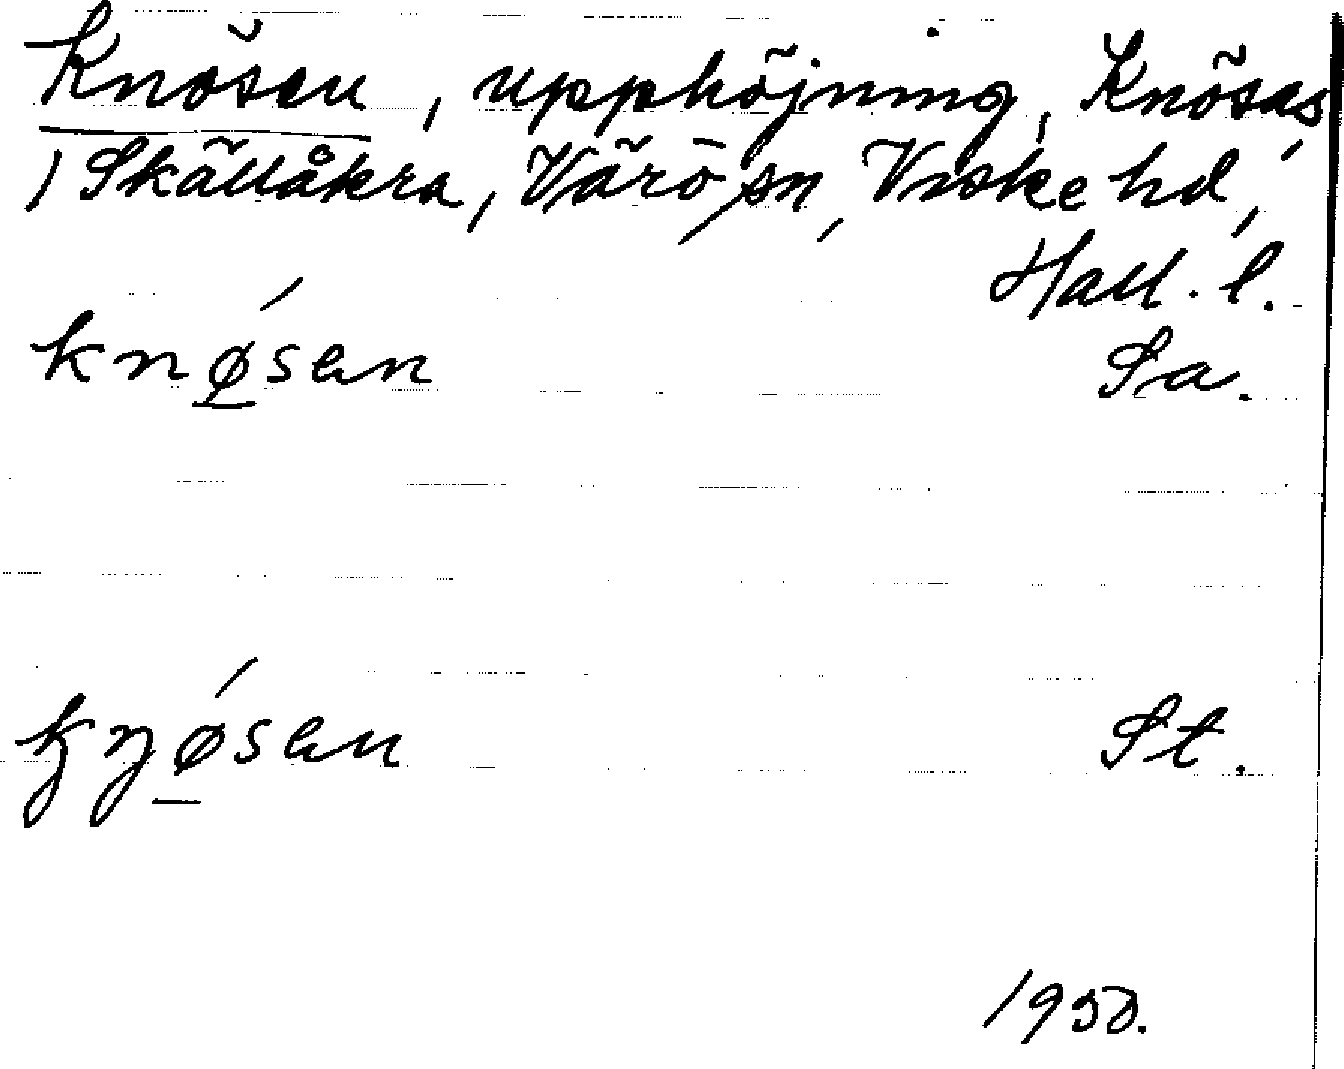 Knösen, upphöjning, Knösas,
) Skällåkra, Värö sn, Viske hd,
Hall. l.
knǿ̱sen Sa.
kŋǿ̱sen St.
1950.